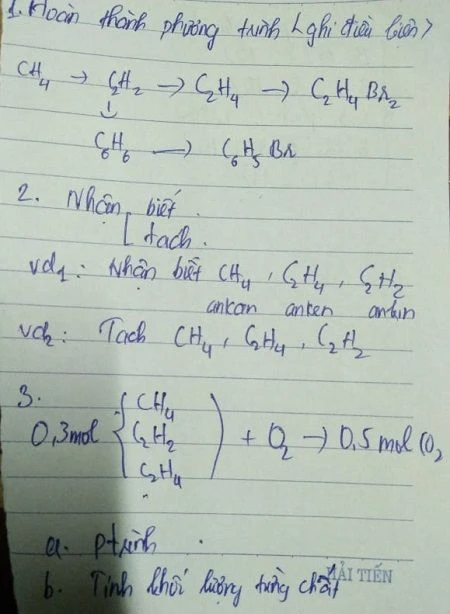 1. Hoàn thành phương trình <ghi điều kiện>
CH4 → C2H2 → C2H4 → C2H4Br2
↓
C6H6 → C6H5Br
2. Nhận biết.
[ tách.
vd1: Nhận biết CH4, C2H4, C2H2
ankan anken ankin
vd2: Tách CH4, C2H4, C2H2
3.
0,3mol { CH4 C2H2 C2H4 ) + O2 → 0,5 mol CO2
a. ptrình
b. Tính khối lượng từng chất
HẢI TIẾN